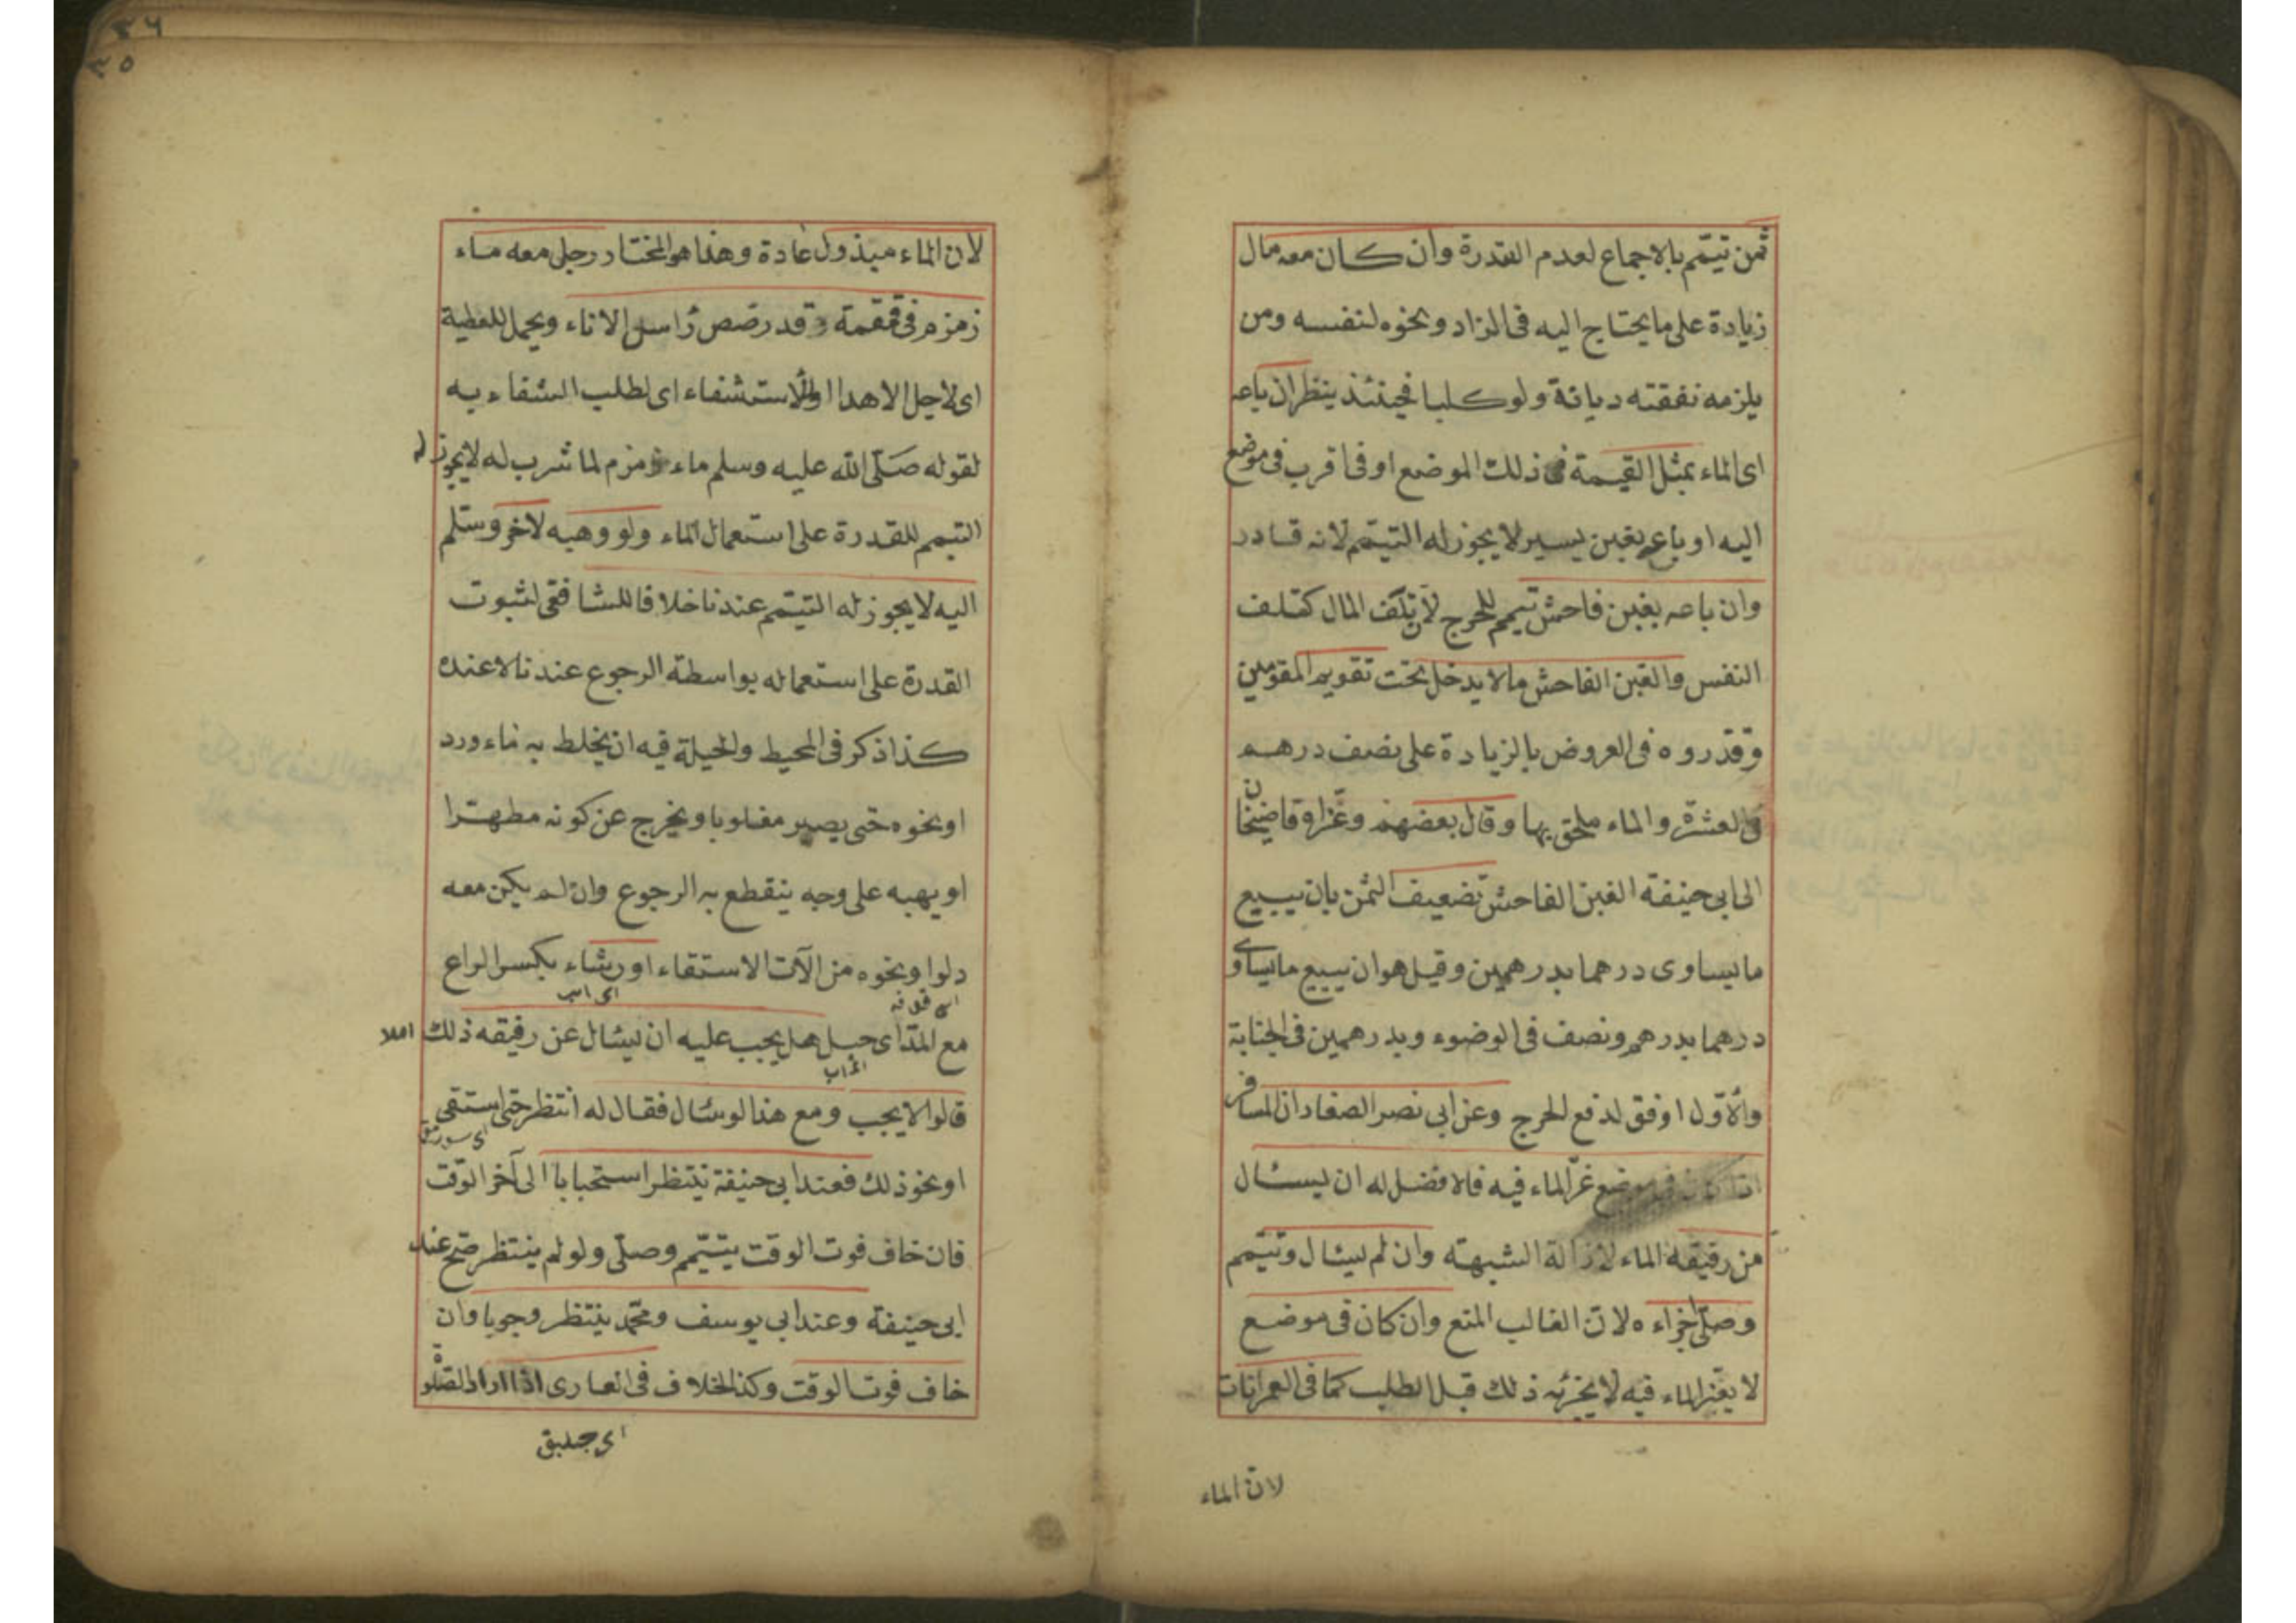 ثمن تيمّم بالاجماع لعدم القدرة وان كان معه مال
زيادة على ما يحتاج اليه فى الزاد ونحوه لنفسه ومن
يلزمه نفقته ديانة ولو كلبا فحينئذ ينظر ان باعه
اى الماء بمثل القيمة فى ذلك الموضع او فى اقرب فى موضع
اليه او باعه بغبن يسير لا يجوز له التيمّم لانه قادر
وان باعه بغبن فاحش تيمم للحرج لان تلف المال كتلف
النفس والغبن الفاحش ما لا يدخل تحت تقويم المقومين
وقدروه فى العروض بالزيادة على نصف درهم
فى العشرة والماء ملحق بها وقال بعضهم وعزاه قاضيخان
الى ابى حنيفة الغبن الفاحش تضعيف الثمن بان يبيع
ما يساوى درهما بدرهمين وقيل هو ان يبيع ما يساوى
درهما بدرهم ونصف فى الوضوء وبدرهمين فى الجنابة
والاوّل اوفق لدفع الحرج وعن ابى نصر الصفار ان المسافر
اذا كان فى موضع عزّ الماء فيه فالافضل له ان يسئال
من رفيقه الماء لازالة الشبهته وان لم يسئال وتيمّم
وصلّى اجزاءه لانّ الغالب المنع وان كان فى موضع
لا يعز الماء فيه لا يجزئه ذلك قبل الطلب كما فى العمرانات
لانّ الماء
٣٦
٣٥
لان الماء مبذول عادة وهذا هو المختار رجل معه ماء
زمزم فى قمقمة وقد رصص رأس الاناء ويحمل للعطية
اى لاجل الاهدا او للاستشفاء اى لطلب الشفاء به
لقوله صلّى الله عليه وسلم ماء زمزم لما شرب له لا يجوز له
التيمم للقدرة على استعمال الماء ولو وهبه لاخر وسلم
اليه لا يجوز له التيمّم عندنا خلافا للشافعى لثبوت
القدرة على استعماله بواسطة الرجوع عندنا لا عنده
كذا ذكر فى المحيط والحيلة فيه ان يخلط به ماء ورد
او نحوه حتى يصير مغلوبا ويخرج عن كونه مطهرا
او يهبه على وجه ينقطع به الرجوع وان لم يكن معه
دلوا ونحوه من الآت الاستقاء او رشاء بكسر الراء
مع المدّ اى حبل هل يجب عليه ان يسئال عن رفيقه ذلك ام لا
قالوا لا يجب ومع هذا لو سئال فقال له انتظر حتى استقى
او نحو ذلك فعند ابى حنيفة ينتظر استحبابا الى آخر الوقت
فان خاف فوت الوقت يتيمّم وصلّى ولو لم ينتظر صح عند
ابى حنيفة وعند ابى يوسف ومحمّد ينتظر وجوبا وان
خاف فوت الوقت وكذا الخلاف فى العارى اذا اراد الصلوة
اى چپلاق